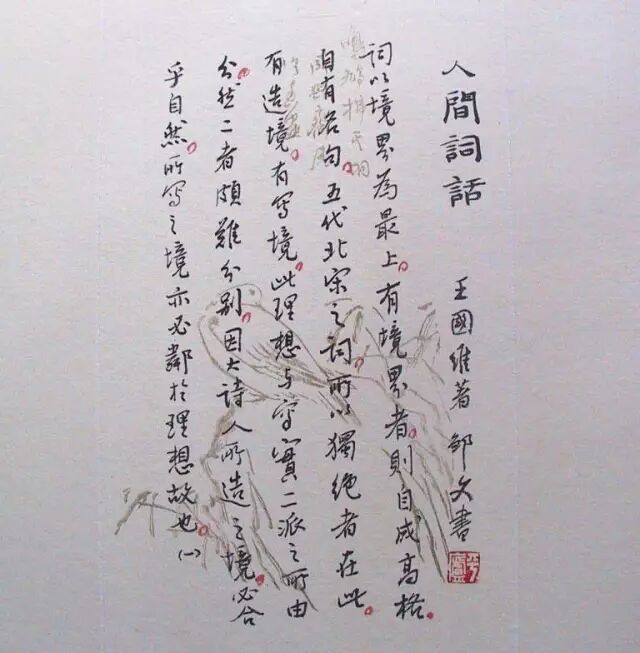 人間詞話
王國維著 邹文書
詞以境界為最上。有境界者。則自成高格。
自有名句。五代北宋之詞。所以獨絕者在此。
有造境。有寫境。此理想与寫實二派之所由
分。然二者頗難分别。因大詩人所造之境。必合
乎自然。所寫之境亦必鄰於理想故也。(一)